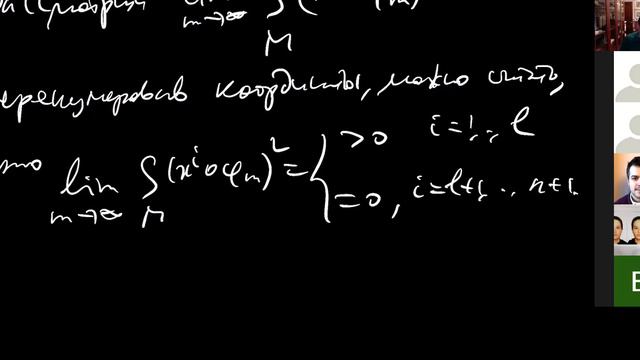 lim ∫
m→∞ M
перенумеровав координаты, можно считать,
что lim ∫ (xⁱ∘φₘ)² = { >0 i=1,.., l
m→∞ M =0, i=l+1, .., n+1
E